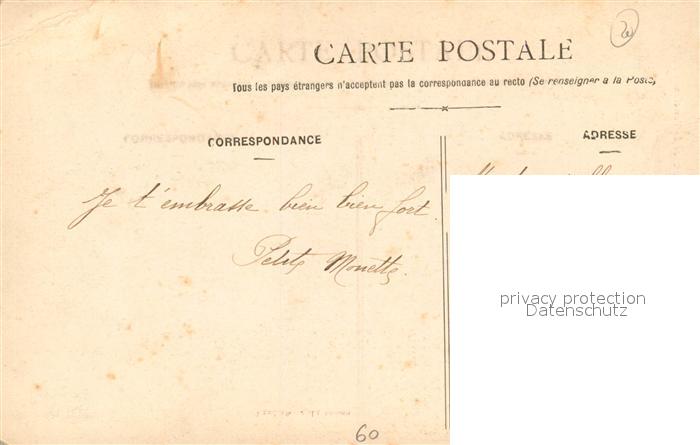 CARTE POSTALE
Tous les pays étrangers n'acceptent pas la correspondance au recto (Se renseigner à la Poste)
CORRESPONDANCE
ADRESSE
Je t'embrasse bien bien fort.
Petite Monette.
privacy protection
Datenschutz
60